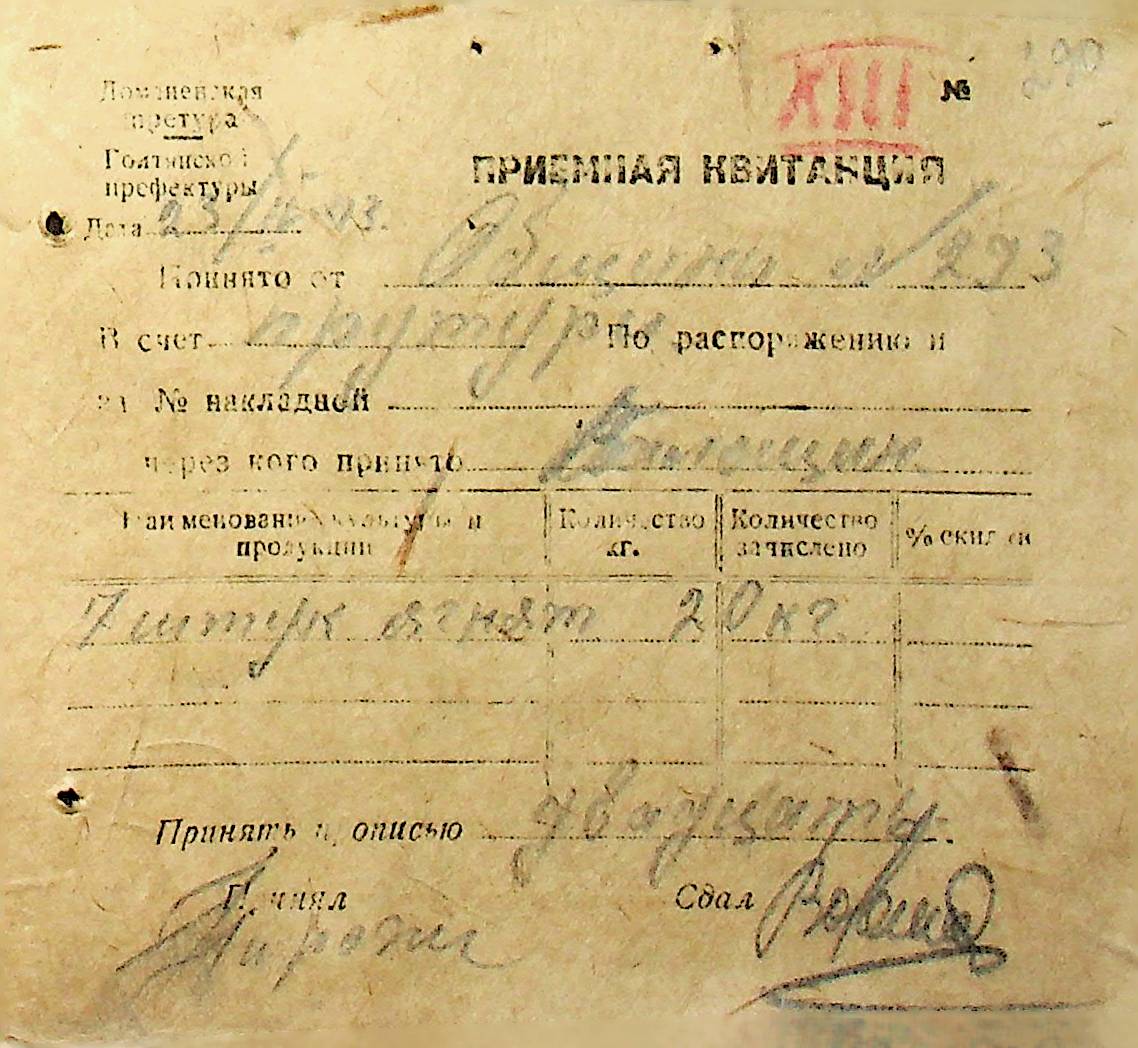 XIII № 290
Доманевская
претура
Голтянской
префектуры
ПРИЕМНАЯ КВИТАНЦИЯ
Дата 23/IV-43.
Принято от Общины №293
В счет притури По распоряжению и
на № накладной
через кого принято
Наименование культуры и продукции Количество кг. Количество зачислено % скидки
7 штук ягнят 20 кг.
Принять прописью двадцать.
Принял Сдал